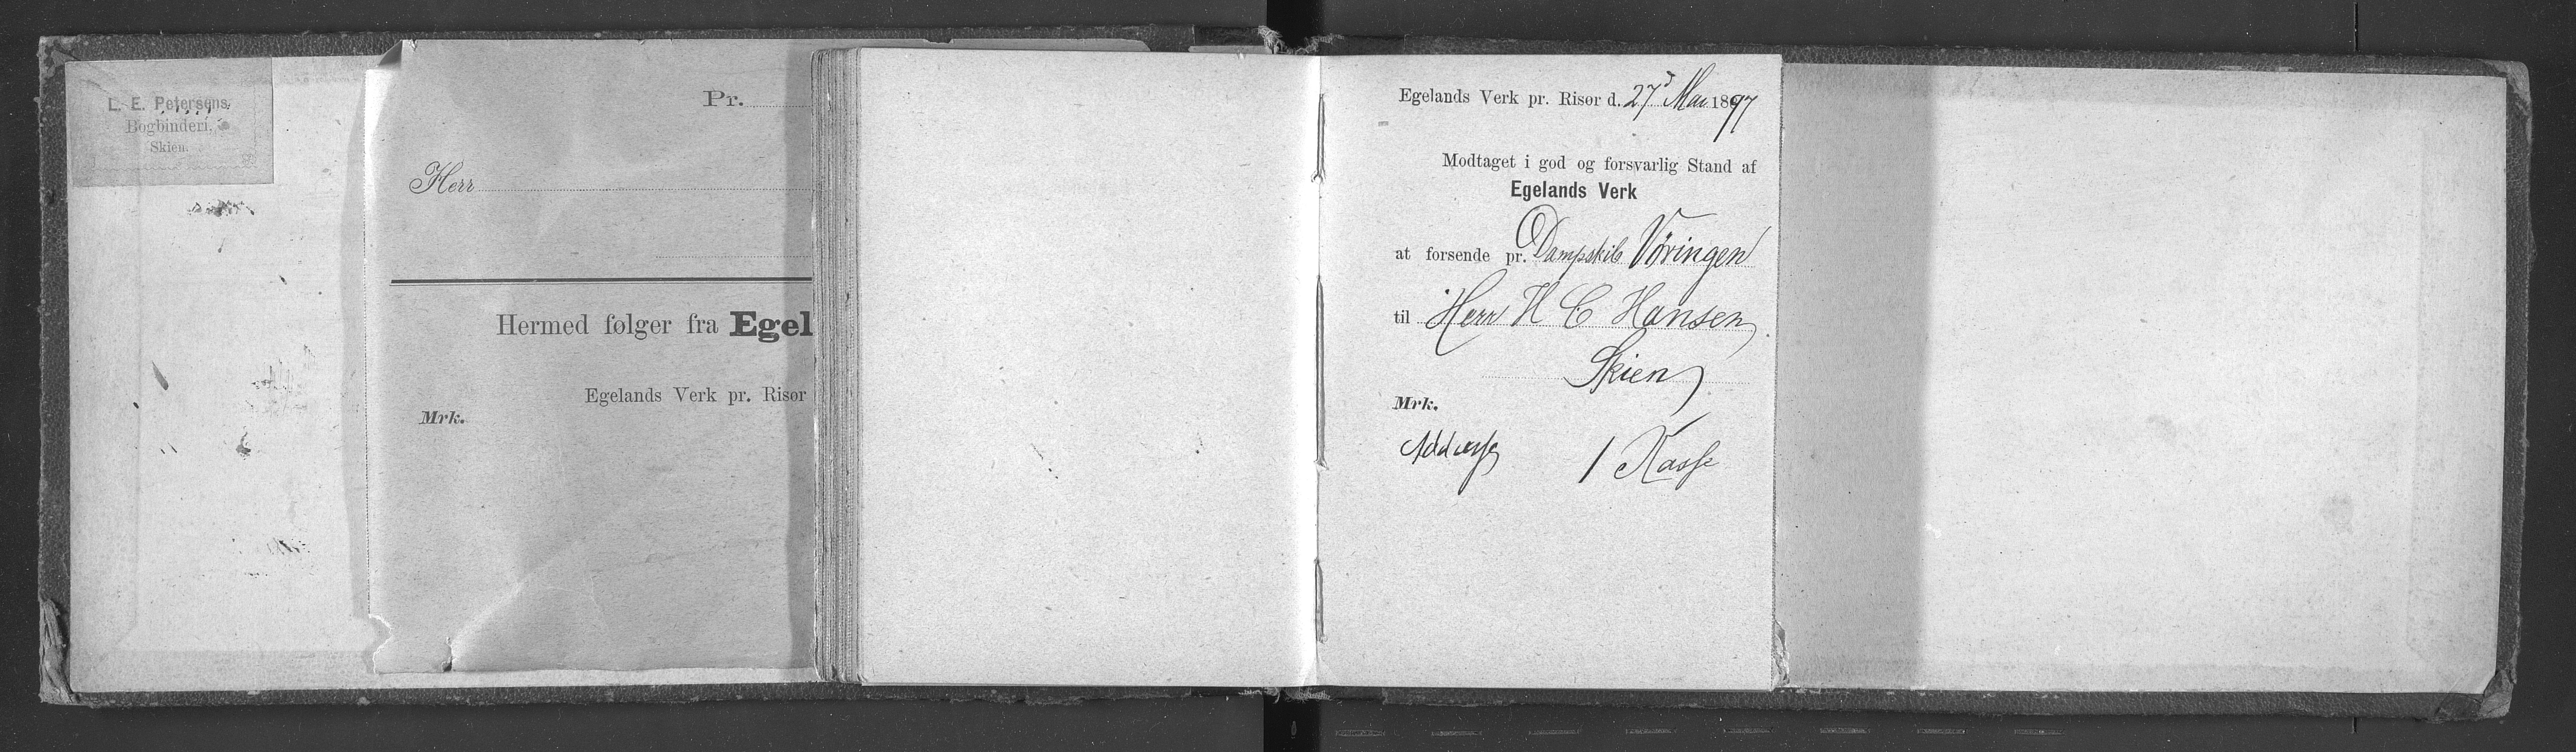 L. E. Petersens
Bogbinderi.
Skien.
Pr.
Herr
Hermed følger fra Egel
Egelands Verk pr. Risør
Mrk.
Egelands Verk pr. Risør d. 27d Mai 1897
Modtaget i god og forsvarlig Stand af
Egelands Verk
at forsende pr. Dampskib Vøringen
til Herr H C Hansen
Skien
Mrk.
Addresse 1 Kasse